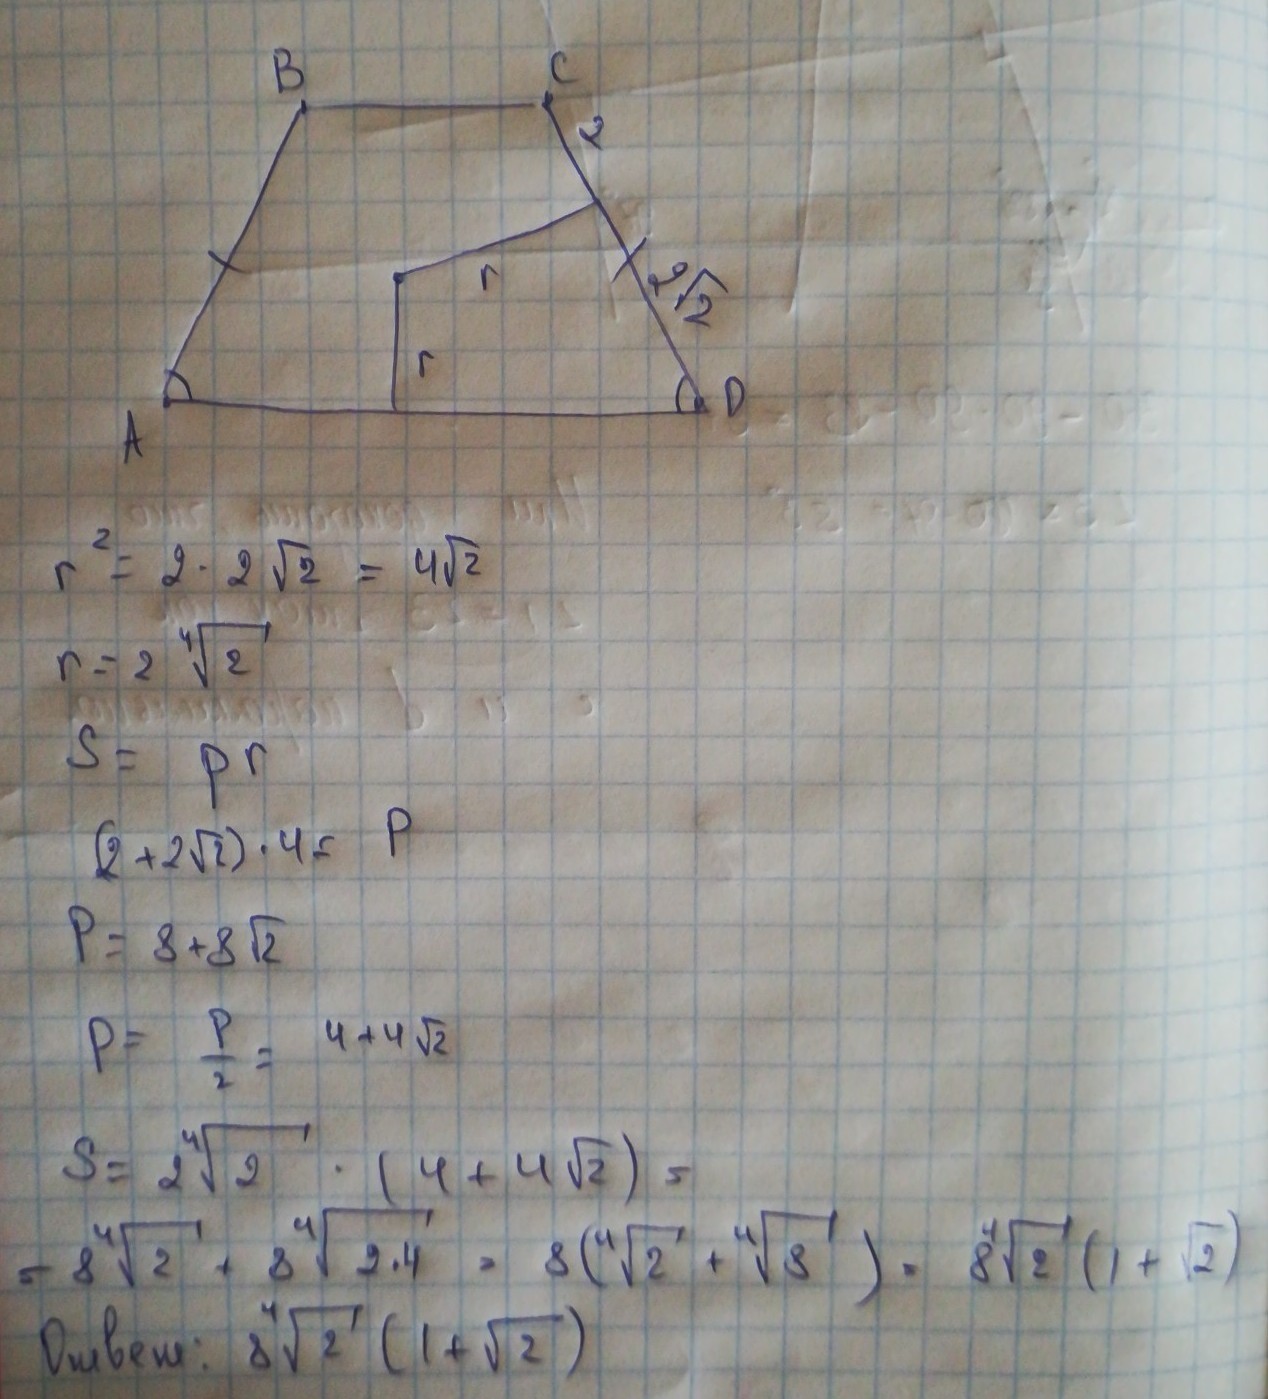 B C
2
2√2
r
r
A D
r² = 2 · 2√2 = 4√2
r = 2 ⁴√2
S = pr
(2 + 2√2) · 4 = P
P = 8 + 8√2
p = P/2 = 4 + 4√2
S = 2⁴√2 · (4 + 4√2) =
= 8⁴√2 + 8⁴√2·4 = 8(⁴√2 + ⁴√8) = 8⁴√2 (1 + √2)
Ответ: 8⁴√2 (1 + √2)